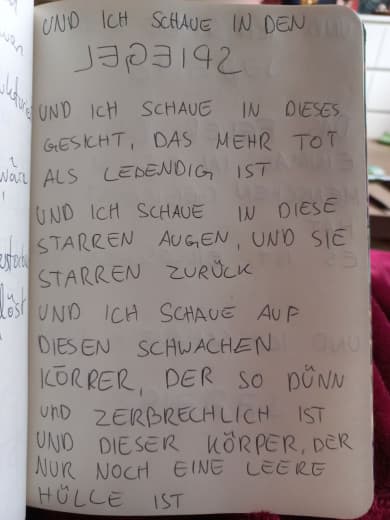 UND ICH SCHAUE IN DEN
LEGEIPS
UND ICH SCHAUE IN DIESES
GESICHT, DAS MEHR TOT
ALS LEBENDIG IST
UND ICH SCHAUE IN DIESE
STARREN AUGEN, UND SIE
STARREN ZURÜCK
UND ICH SCHAUE AUF
DIESEN SCHWACHEN
KÖRRER, DER SO DÜNN
UND ZERBRECHLICH IST
UND DIESER KÖRPER, DER
NUR NOCH EINE LEERE
HÜLLE IST